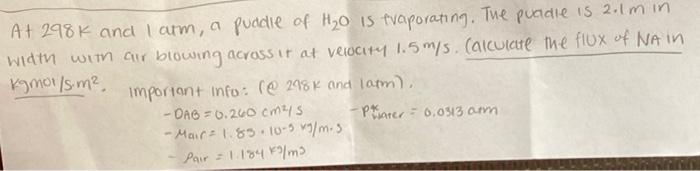 At 298K and 1 atm, a puddle of H₂O is evaporating. The puddle is 2.1m in
width with air blowing across it at velocity 1.5m/s. Calculate the flux of NA in
kgmol/s·m². Important info: (@ 298K and 1atm).
- DAB = 0.260 cm²/s - P*water = 0.0313 atm
- Mair = 1.85 · 10-5 kg/m·s
- Pair = 1.184 kg/m³